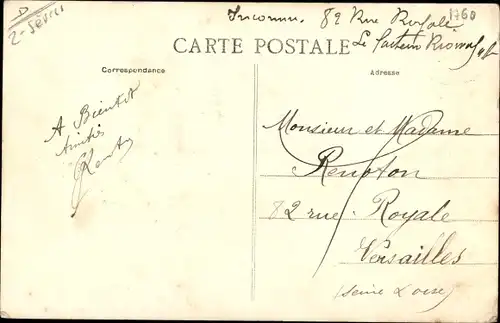 2-Sèvres
Inconnu. 82 Rue Royale
1760
Le facteur
CARTE POSTALE
Correspondance
Adresse
A Bientot
Amitiés
Monsieur et Madame
Renoton
82 rue Royale
Versailles
(Seine & Oise)